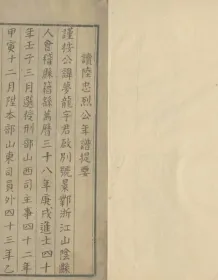 讀陸忠烈公年譜提要
謹按公諱夢龍字君啟別號景鄴浙江山陰縣
人會稽縣籍萬曆三十八年庚戌進士四十
年壬子三月選授刑部山西司主事四十二年
甲寅十二月陞本部山東司員外四十三年乙